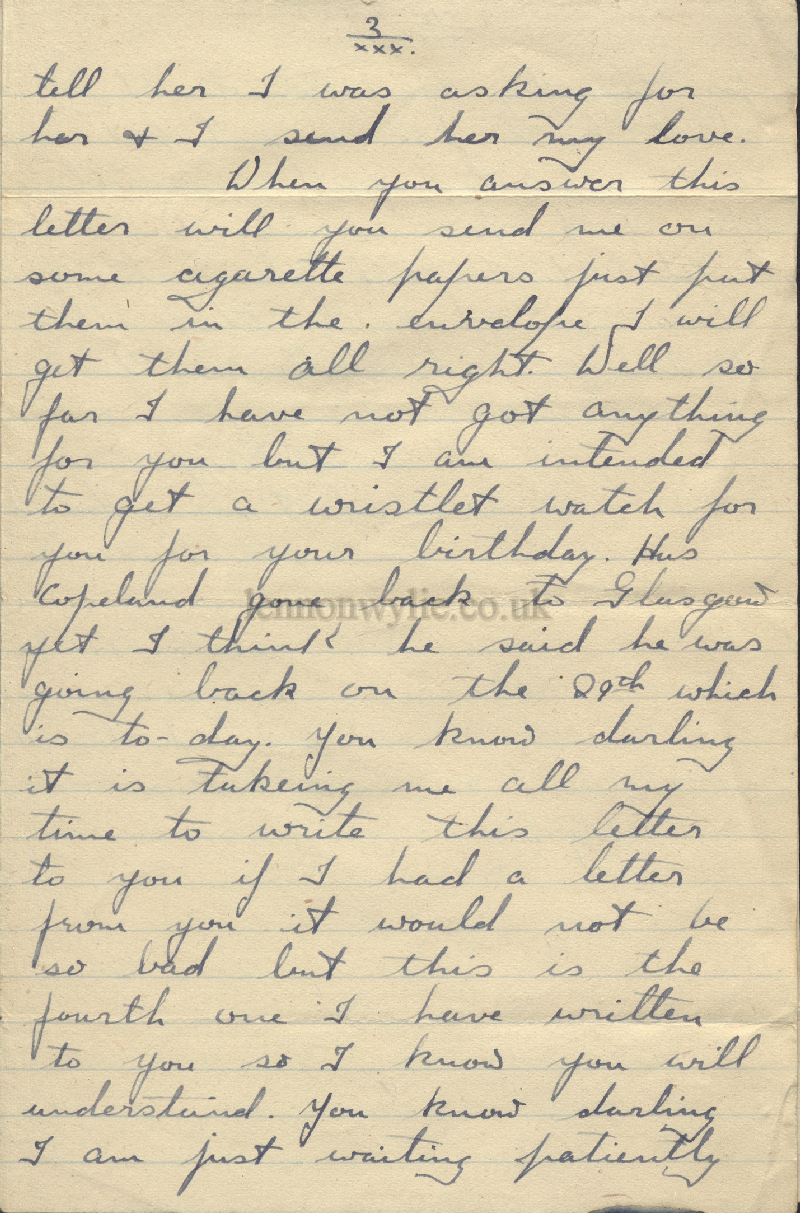 3
xxx.
tell her I was asking for
her & I send her my love.
When you answer this
letter will you send me on
some cigarette papers just put
them in the. envelope I will
get them all right. Well so
far I have not got anything
for you but I am intended
to get a wristlet watch for
you for your birthday. Has
Copeland gone back to Glasgow
lennonwylie.co.uk
yet I think he said he was
going back on the 29th which
is to-day. You know darling
it is takeing me all my
time to write this letter
to you if I had a letter
from you it would not be
so bad but this is the
fourth one I have written
to you so I know you will
understand. You know darling
I am just waiting patiently